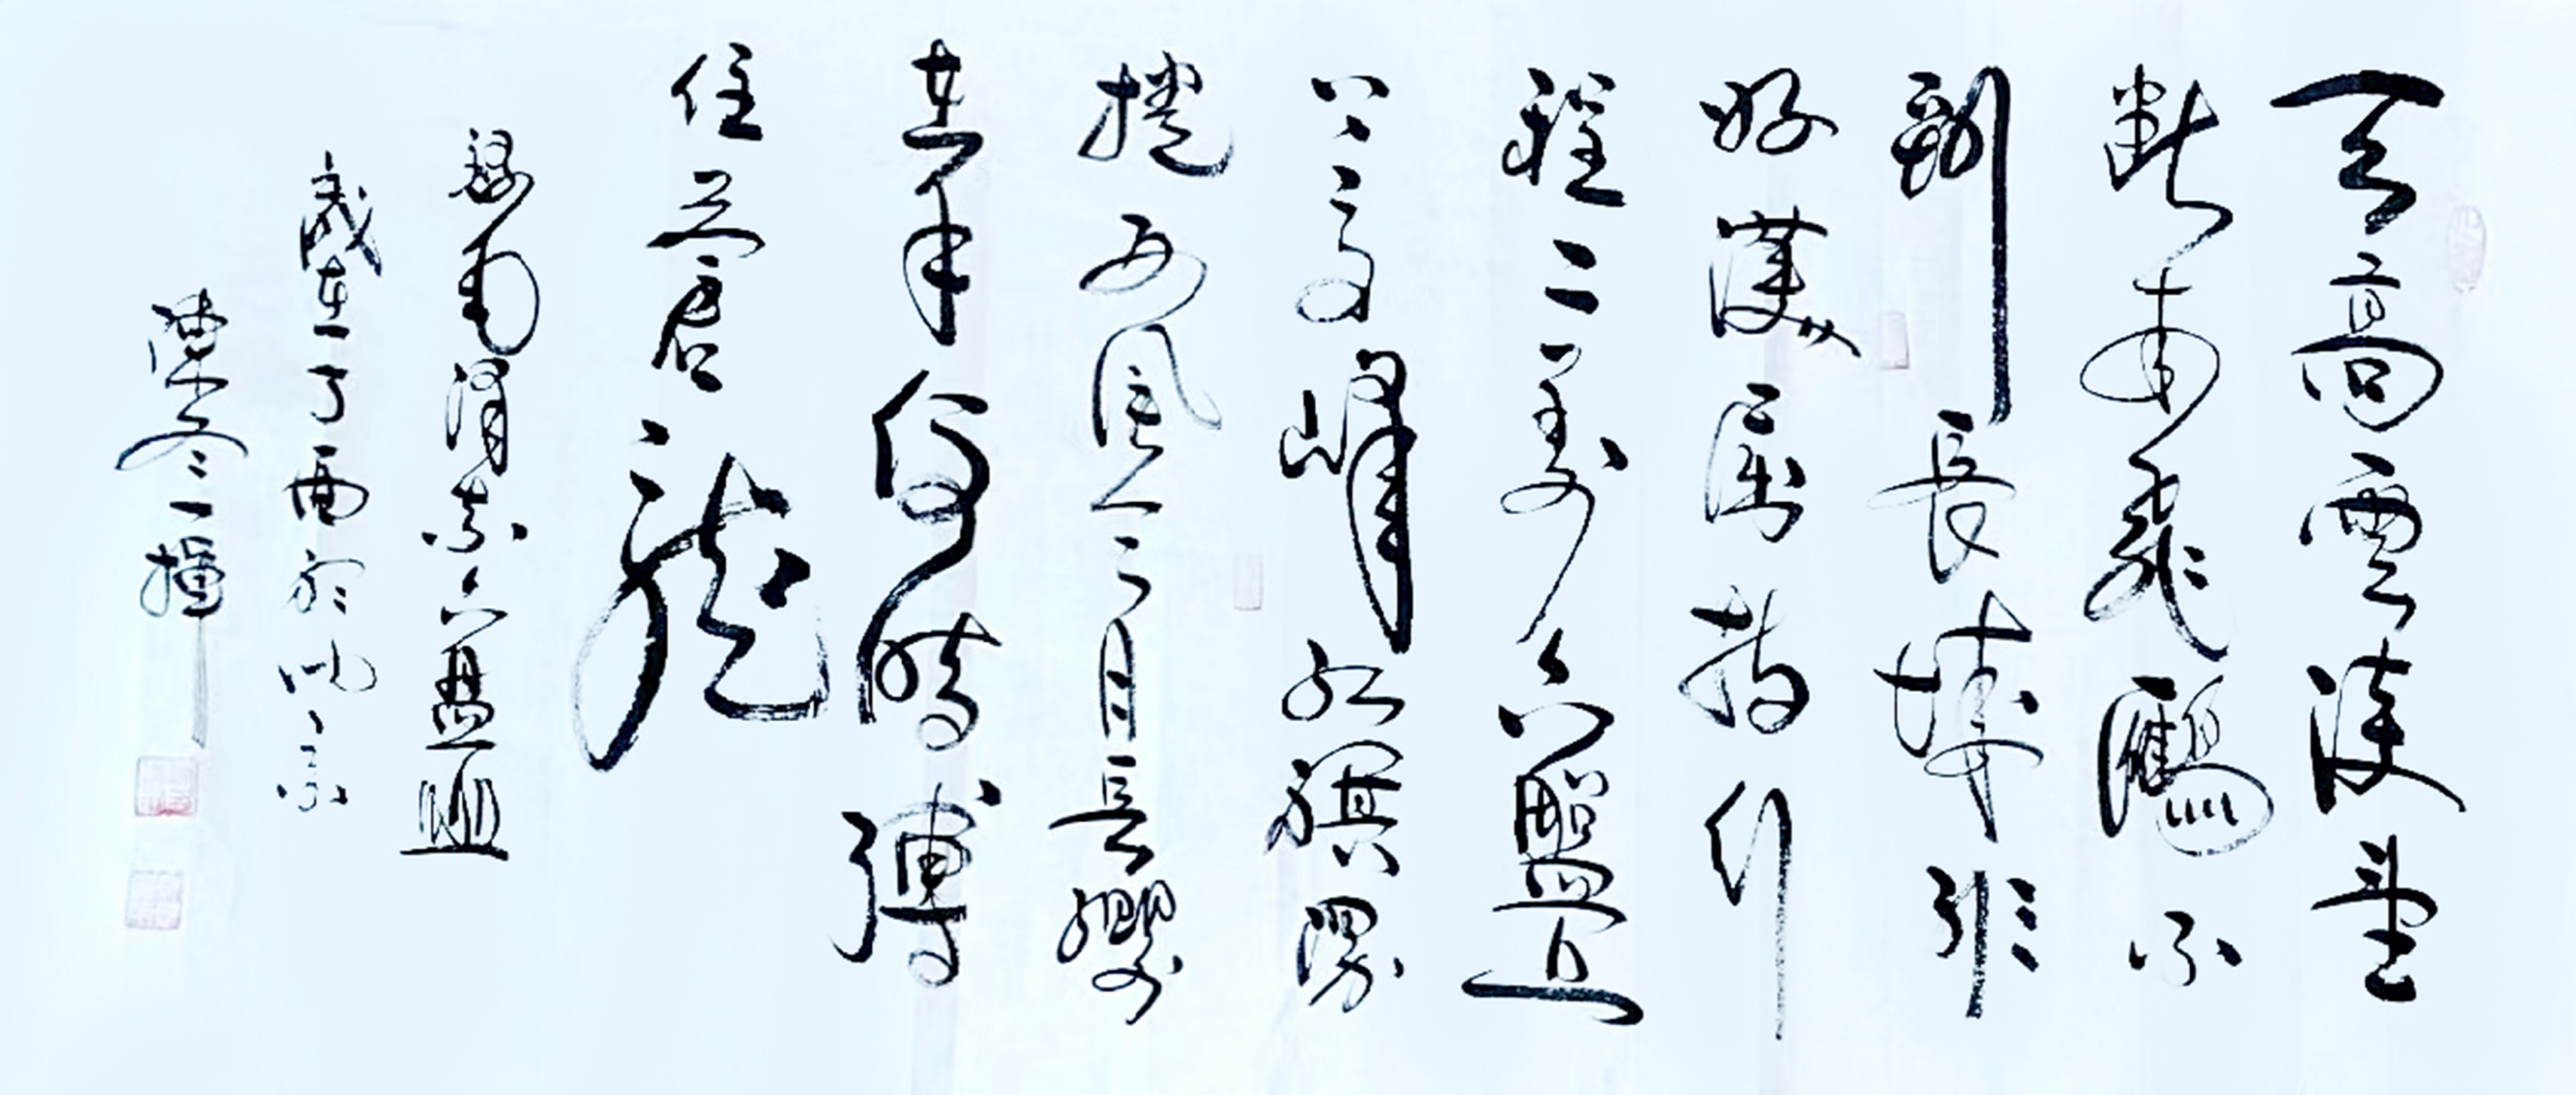 天高雲淡望
斷南飛鴈不
到長城非
好漢屈指行
程二萬六盤山
上高峰紅旗漫
捲西風今日長纓
在手何時縛
住蒼龍
錄毛澤東六盤山
歲在丁酉於
陳冬一